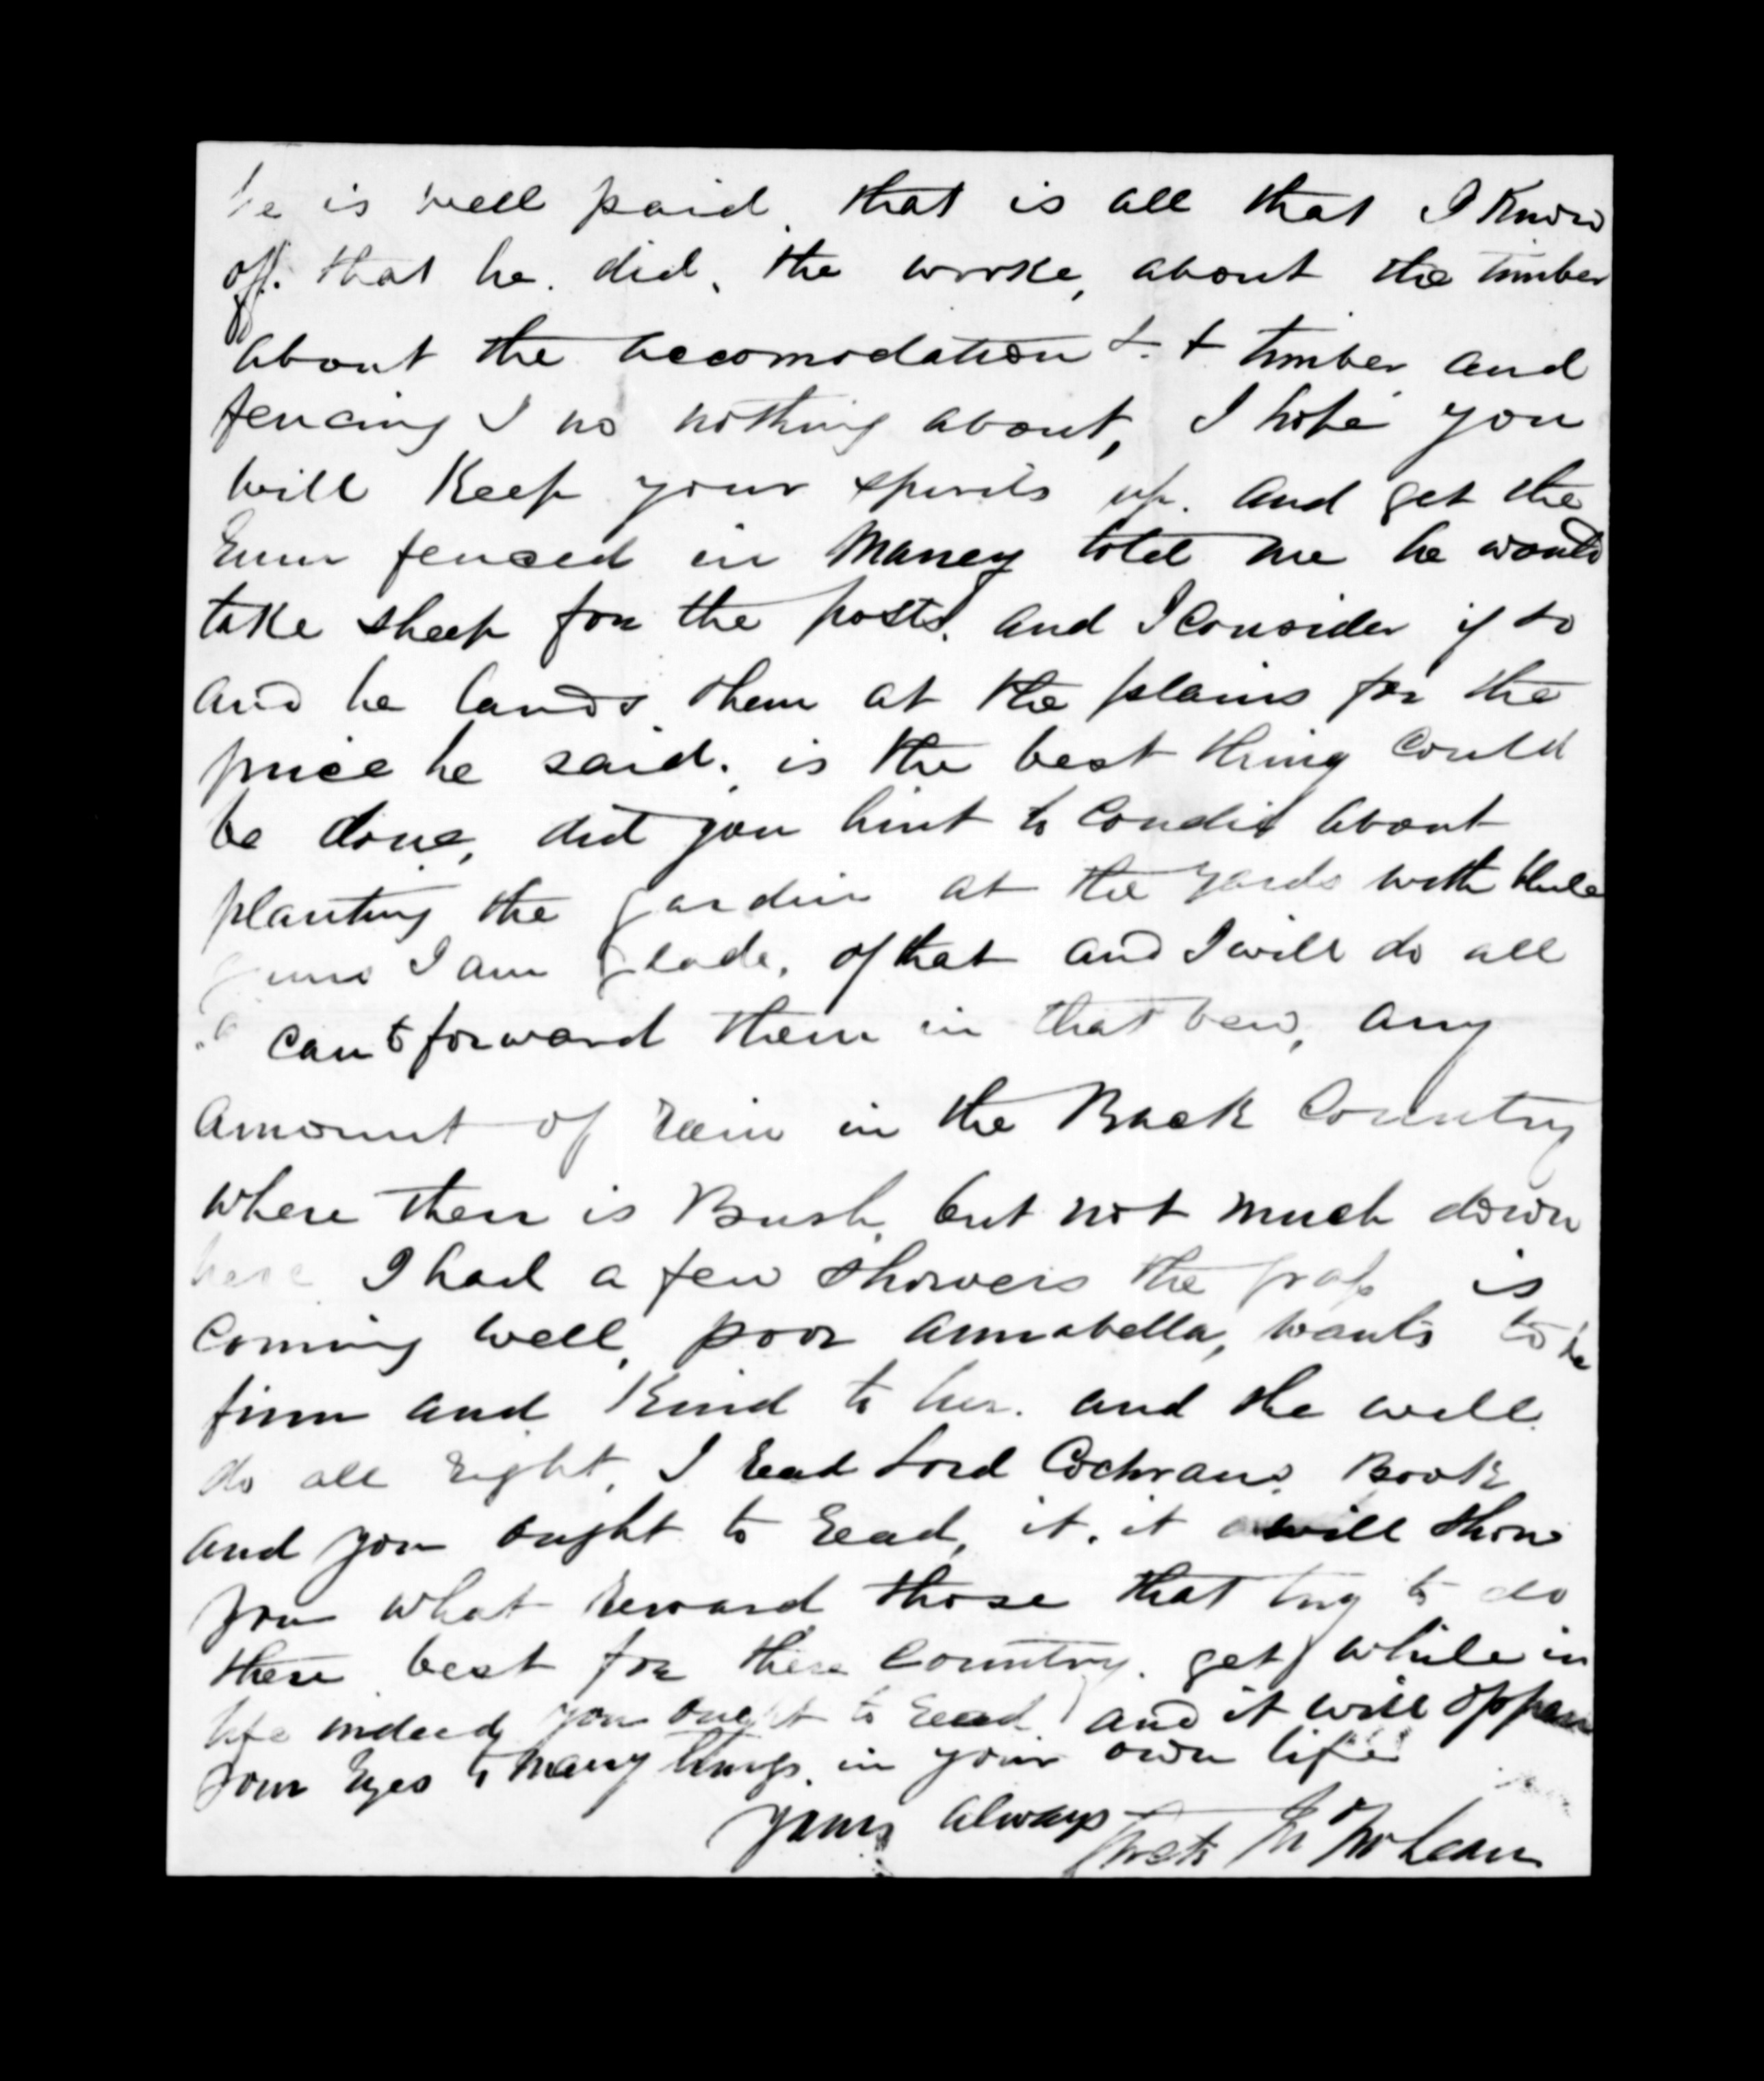 he is well paid. that is all that I know
off. that he. did. the worke, about the timber
about the accomodation & & timber and
fencing I no nothing about, I hope you
will Keep your spirits up. and get the
Runn fenced in Maney told me he would
take sheep for the posts. and I Consider if so
and he lands them at the plains for the
price he said. is the best thing Could
be done, did you hint to Condie about
planting the gardin at the yards with blue
gums I am glade. of that and I will do all
I can to forward them in that vew, any
amount of rain in the Back Country
where ther is Bush, but not much down
here I had a few showers the grass is
Coming well, poor annabella, wants to be
firm and Kind to her. and she will
do all right, I read Lord Cochrans Book
and you ought to read, it, it will show
you what reward those that try to do
there best for there Country. get while in
life indeed you ought to read and it will oppen
your Eyes to many things. in your own life
yours always
McLean